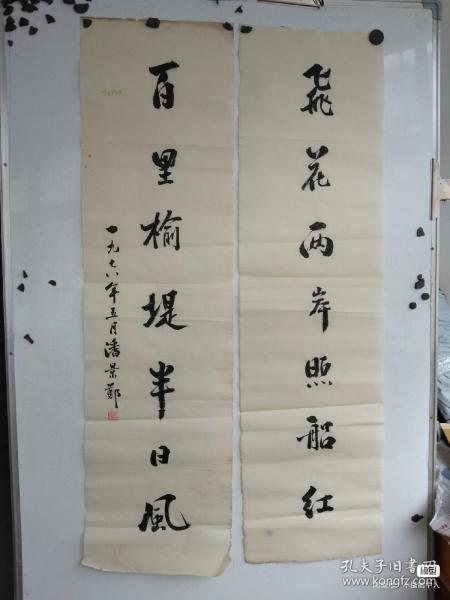 飛花两岸照船红
百里榆堤半日風
一九七八年五月潘景鄭
孔夫子旧书网